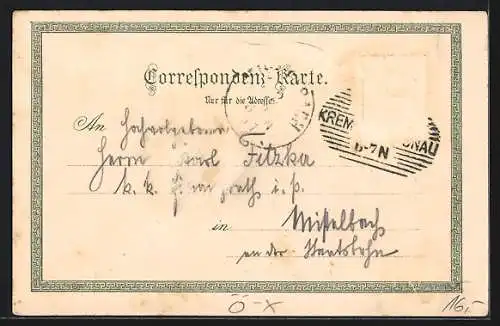 Correspondenz-Karte.
Nur für die Adresse.
KREMS DONAU
6-7N
An Hochwohlgeboren
Herrn Karl Fitzka
k. k. Finanzrath i. P.
in Mistelbach
an der Staatsbahn
Ö-X
16,-